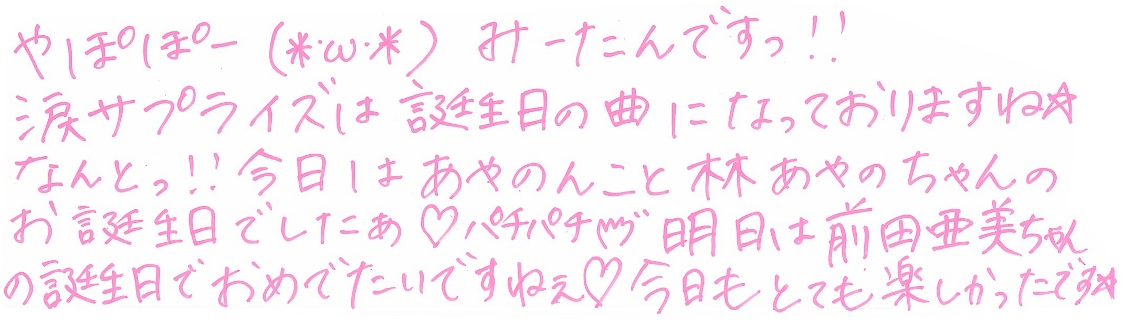 やぽぽー (*·ω·*) みーたんですっ!!
涙サプライズは誕生日の曲になっておりますね☆
なんとっ!!今日はあやのんこと林あやのちゃんの
お誕生日でしたあ♡パチパチ 明日は前田亜美ちゃん
の誕生日でおめでたいですねぇ♡今日もとても楽しかったです☆